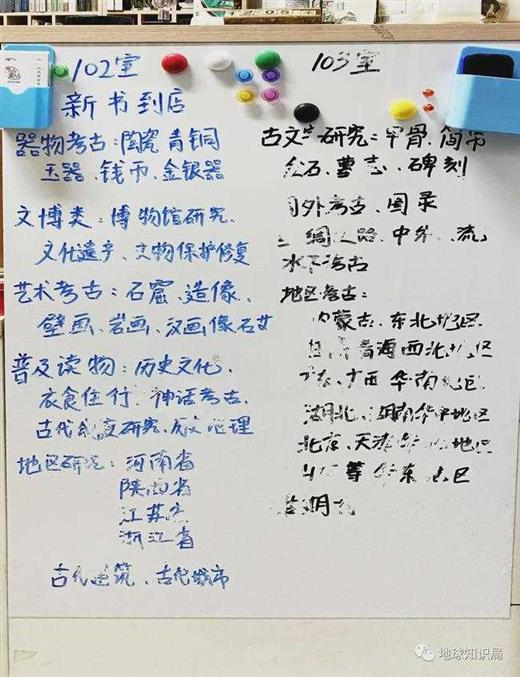 102室
新书到店
器物考古:陶瓷 青铜
玉器、钱币、金银器
文博类:博物馆研究、
文化遗产、文物保护修复
艺术考古:石窟、造像、
壁画、岩画、汉画像石
普及读物:历史文化、
衣食住行、神话考古、
古代制度研究、地理
地区研究:河南省
陕西省
江苏省
浙江省
古代建筑、古代城市
103室
古文字研究:甲骨、简帛
金石、墓志、碑刻
国外考古、图录
丝绸之路、中外 流
水下考古
地区考古:
内蒙古、东北地区
青海西北地区
广东、广西 华南地区
湖北、湖南华中地区
北京、天津华北地区
等华东地区
地球知识局